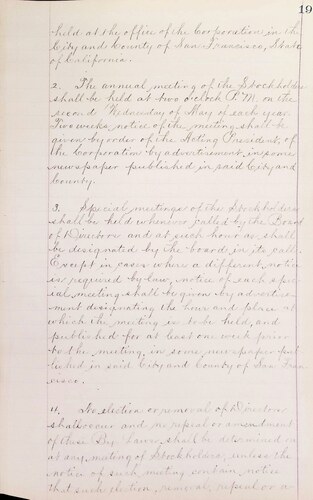 19
held at the office of the Corporation in the
City and County of San Francisco, State
of California.
2. The annual meeting of the Stockholders
shall be held at two o'clock P.M. on the
second Wednesday of May of each year.
Two weeks notice of the meeting shall be
given by order of the Acting President, of
the Corporation by advertisement in some
newspaper published in said City and
County.
3. Special meetings of the Stockholders
shall be held whenever called by the Board
of Directors and at such hour as shall
be designated by the board in its call.
Except in cases where a different notice
is required by law, notice of each spe-
cial meeting shall be given by advertise-
ment designating the hour and place at
which the meeting is to be held, and
published for at least one week prior
to the meeting, in some newspaper pub-
lished in said City and County of San Fran-
cisco.
4. No election or removal of Directors
shall occur and no repeal or amendment
of these By Laws, shall be determined on
at any meeting of Stockholders, unless the
notice of such meeting contain notice
that such election, removal, repeal or a